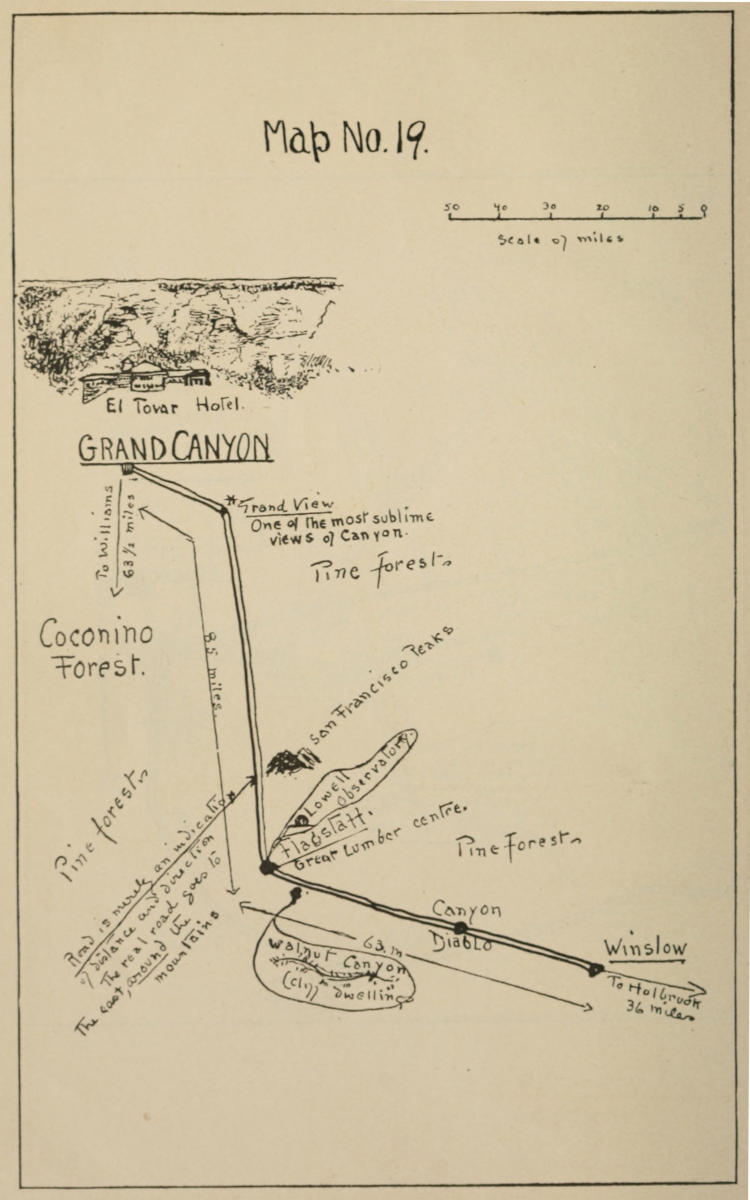 Map No. 19.
50 40 30 20 10 5 0
Scale of miles
El Tovar Hotel.
GRAND CANYON
To Williams
63 1/2 miles
*Grand View
One of the most sublime
views of Canyon.
Pine forest
Coconino
Forest.
85 miles.
San Francisco Peaks
Lowell
Observatory
Flagstaff.
Great Lumber centre.
Pine forest
Pine Forest
Road is merely an indication
of distance and direction
The real road goes to
The east, around the
mountains
Canyon
Diablo
Winslow
63 m
To Holbrook
36 miles
Walnut Canyon
(cliff dwelling)